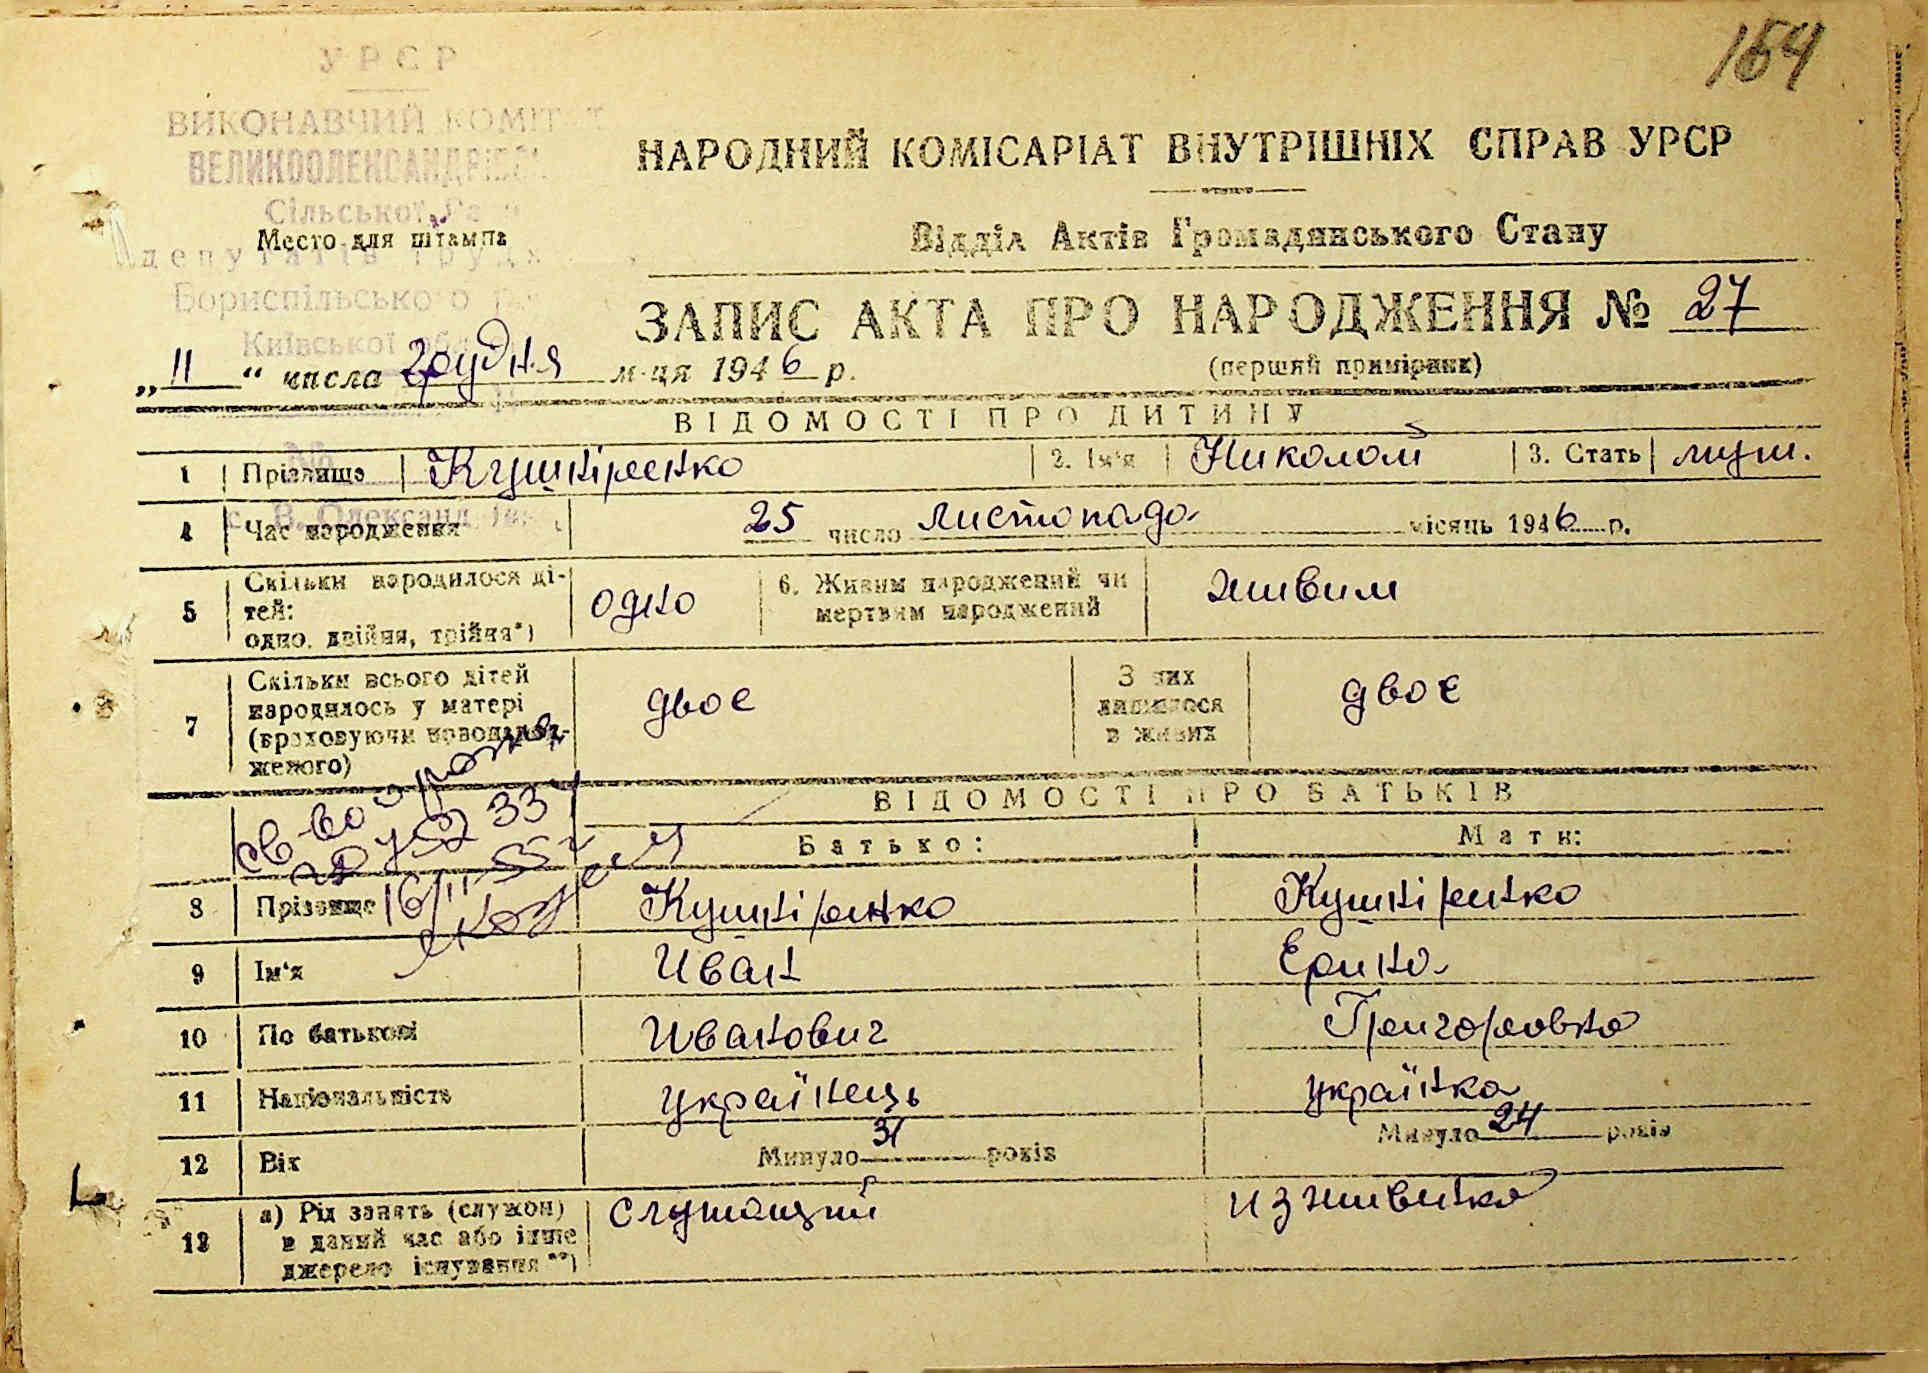 164
УРСР
ВИКОНАВЧИЙ КОМІТЕТ
ВЕЛИКООЛЕКСАНДРІВСЬ
Сільської Ради
Место для штампа
депутатів труд
Бориспільського р
Київської обл
НАРОДНИЙ КОМІСАРІАТ ВНУТРІШНІХ СПРАВ УРСР
Відділ Актів Громадянського Стану
ЗАПИС АКТА ПРО НАРОДЖЕННЯ № 27
(перший примірник)
„11“ числа грудня м-ця 1946 р.
ВІДОМОСТІ ПРО ДИТИНУ
1 Прізвище Кушніренко 2. Ім'я Николай 3. Стать муж.
с. В. Олександ
4 Час народження 25 число листопада місяць 1946 р.
5 Скільки народилося ді-
тей:
одно, двійня, трійня*) одно 6. Живим народжений чи
мертвим народжений живим
7 Скільки всього дітей
народилось у матері
(враховуючи новонарод-
женого) двоє З них
лишилося
в живих двоє
св-во о рожд
ВІДОМОСТІ ПРО БАТЬКІВ
Батько: Мати:
8 Прізвище Кушніренко Кушніренко
9 Ім'я Иван Ерина
10 По батькові Иванович Григоровна
11 Національність українець українка
12 Вік Минуло 31 років Минуло 24 років
13 а) Рід занять (служби)
в даний час або інше
джерело існування**) служащий изживенка